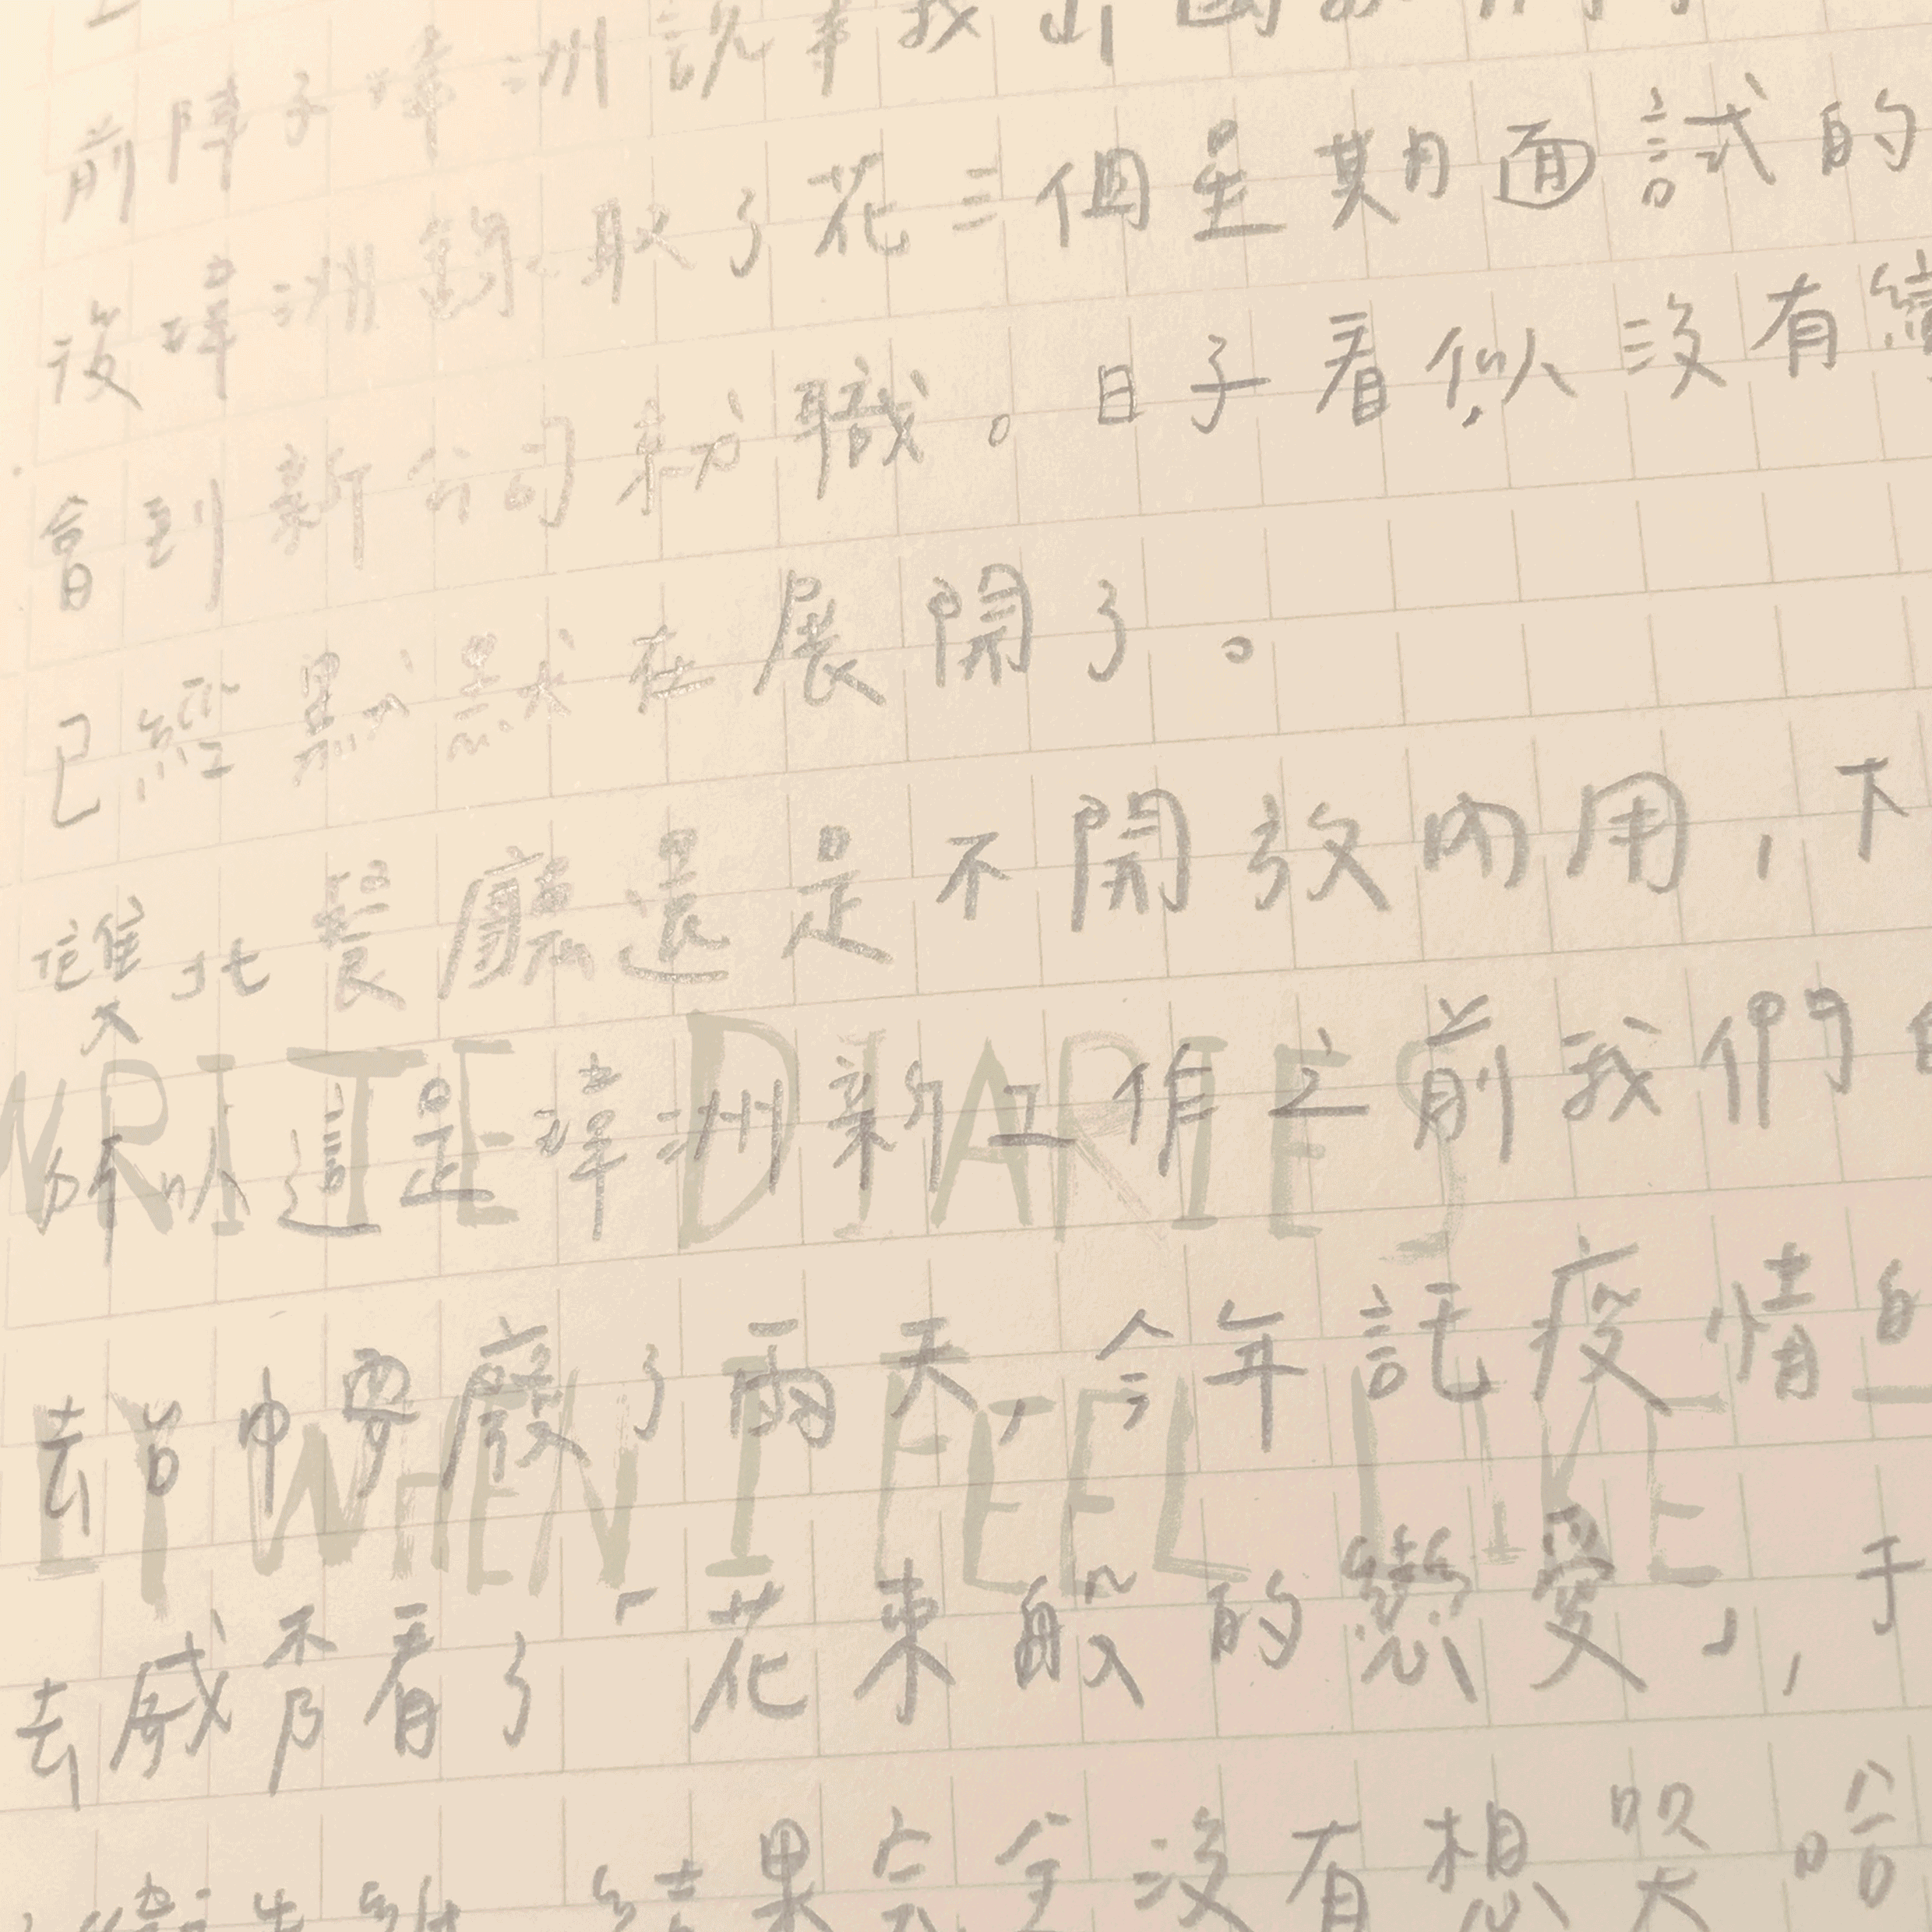 前陣子瑋洲說等我出國
後瑋洲錄取了花三個星期面試的
會到新公司就職。日子看似沒有
已經默默在展開了。
雙北餐廳還是不開放內用，下
WRITE DIARIES
所以這是瑋洲新工作之前我們
去台中耍廢了兩天，今年託疫情的
LY WHEN I FEEL LIKE
去威秀看了「花束般的戀愛」，手
衛生紙 結果完全沒有想哭 哈